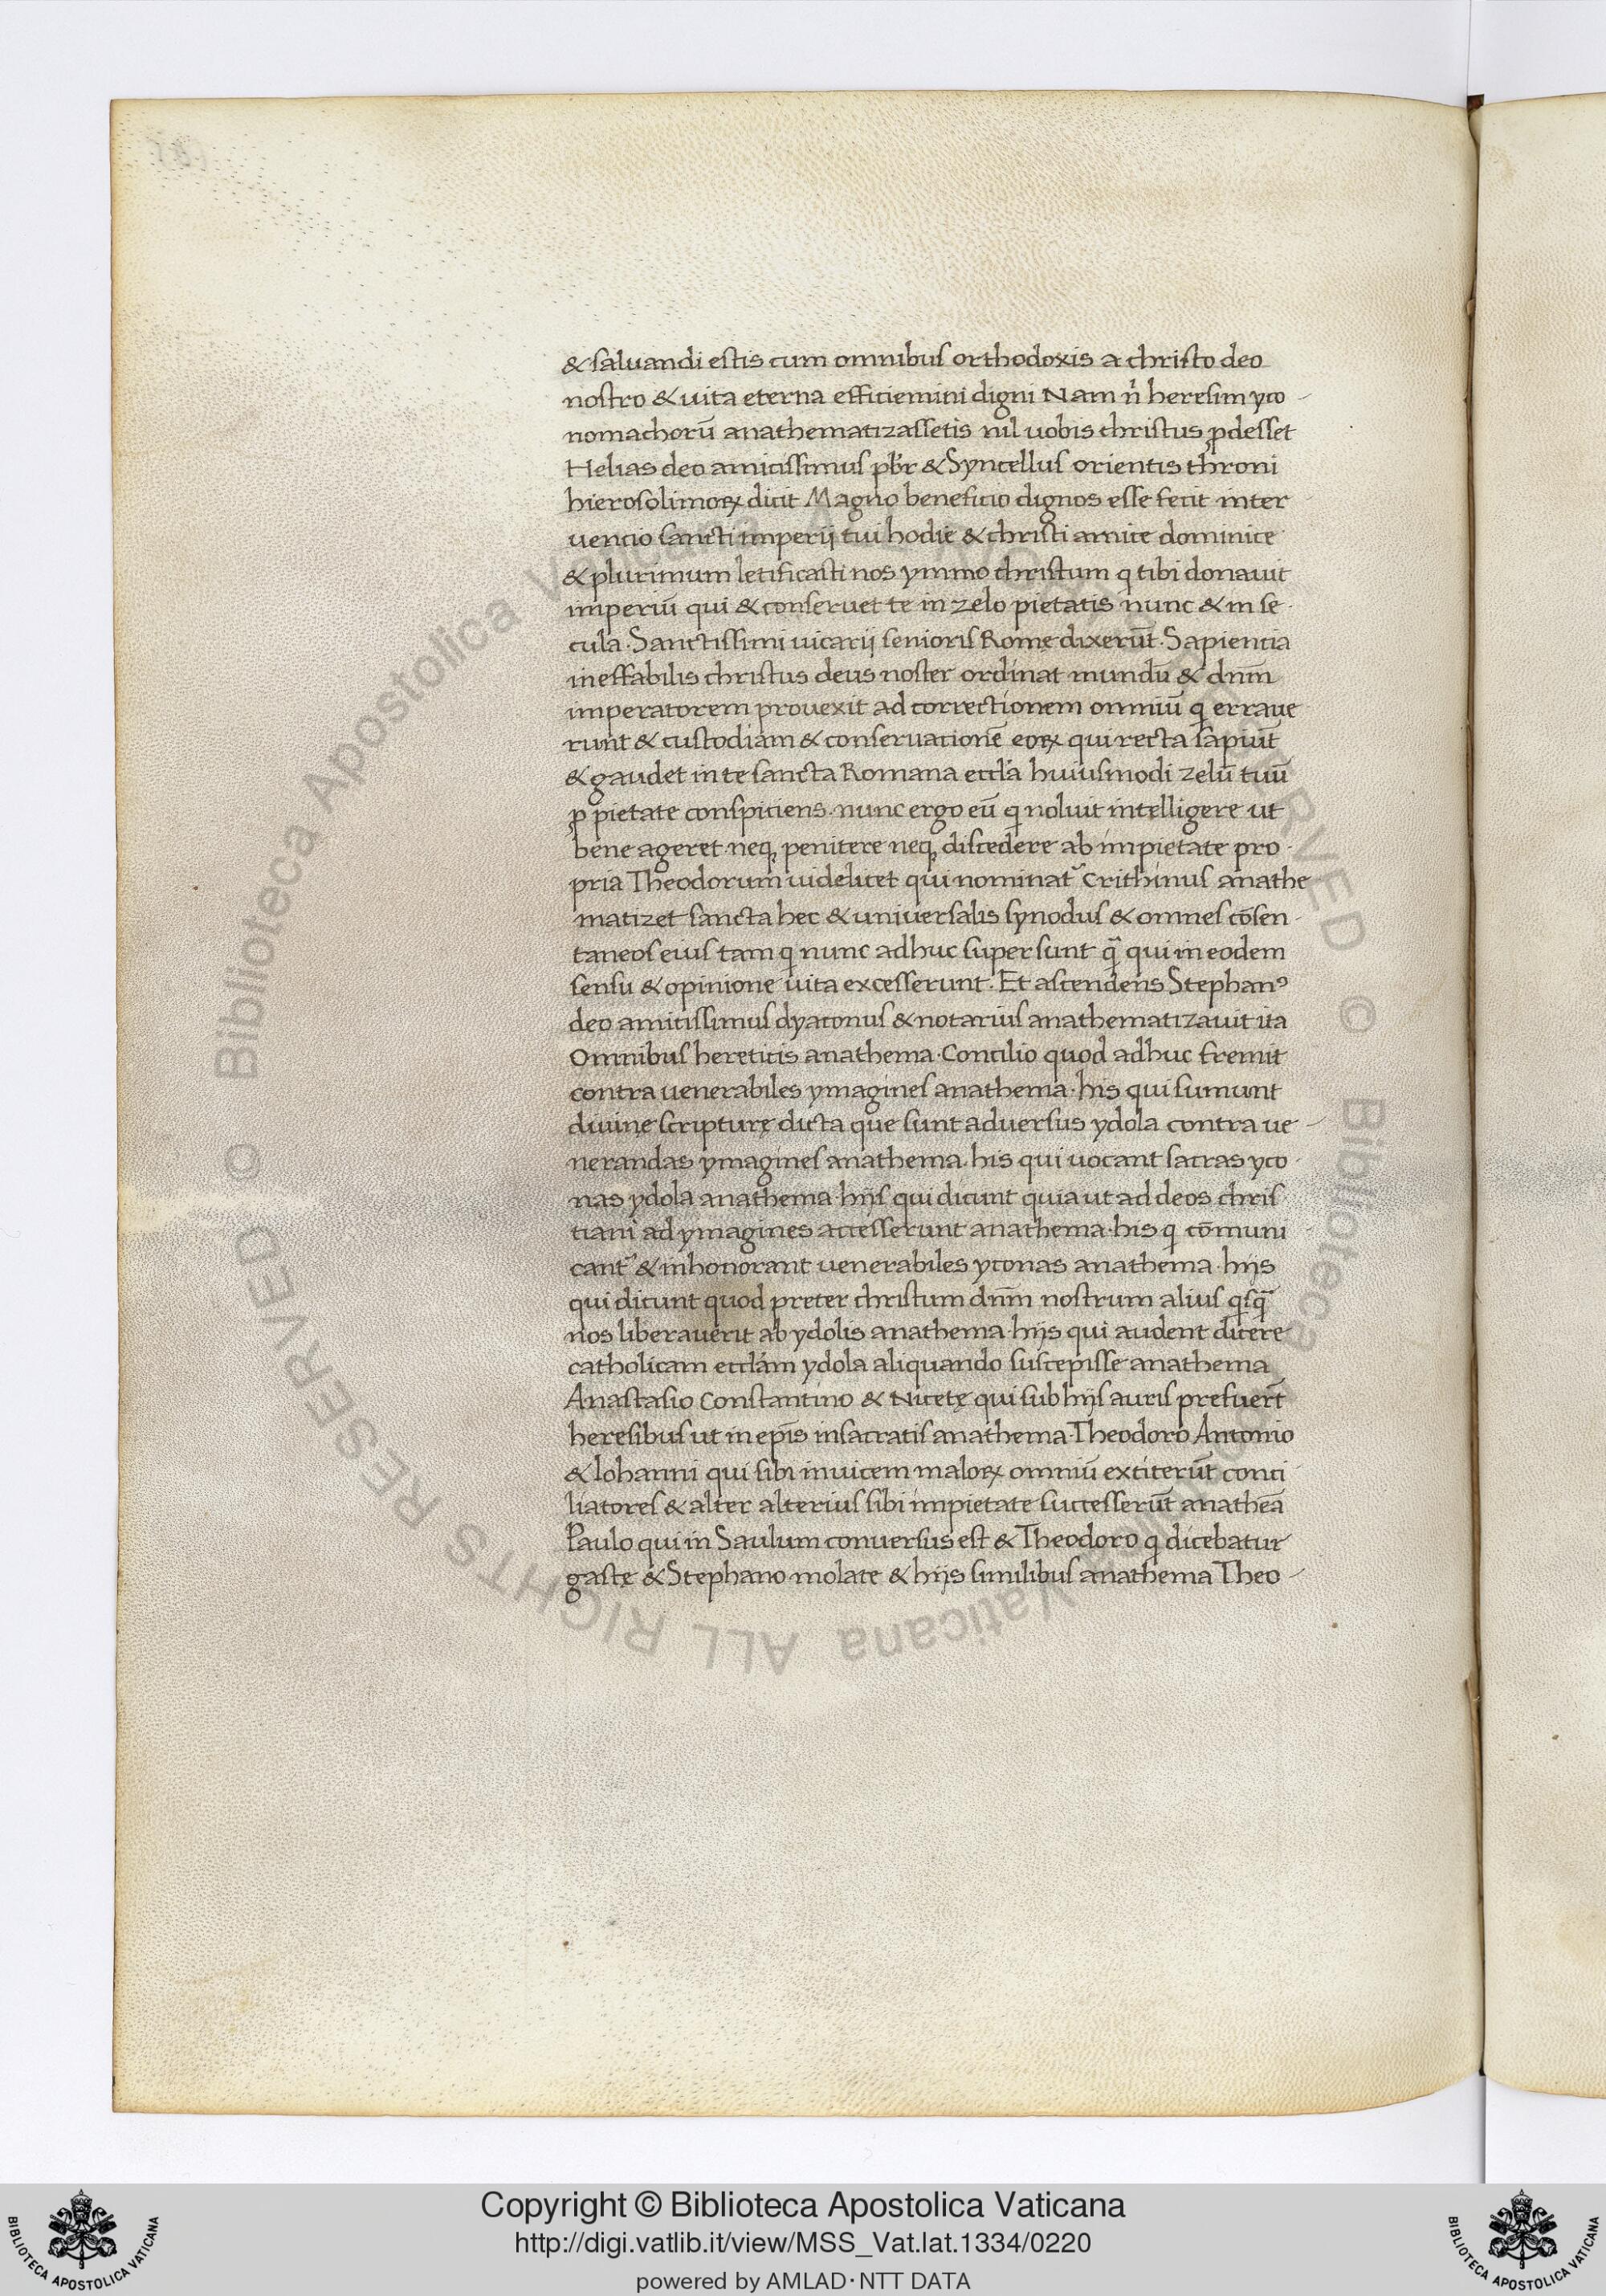 & saluandi estis cum omnibus orthodoxis a christo deo
nostro & uita eterna efficiemini digni Nam n̓ heresim yco-
nomachorū anathematizassetis nil uobis christus ꝓdesset
Helias deo amicissimus pb̓r & Syncellus orientis throni
hierosolimoꝝ dicit Magno beneficio dignos esse fecit inter
uencio sancti imperij tui hodie & christi amice dominice
& plurimum letificasti nos ymmo christum q tibi donauit
imperiū qui & conseruet te in zelo pietatis nunc & in se-
cula· Sanctissimi uicarij senioris Romę dixerūt· Sapientia
ineffabilis christus deus noster ordinat mundū & dnm̄
imperatorem prouexit ad correctionem omniū q erraue
runt & custodiam & conseruationē eoꝝ qui recta sapiūt
& gaudet in te sancta Romana eccl̓a huiusmodi zelū tuū
ꝓ pietate conspiciens· nunc ergo eū q noluit intelligere ut
bene ageret neqꝫ penitere neqꝫ discedere ab impietate pro-
pria Theodorum uidelicet qui nominat᷑ Crithinus anathe
matizet sancta hec & uniuersalis synodus & omnes cōsen-
taneos eius tam q nunc adhuc supersunt q̄ qui in eodem
sensu & opinione uita excesserunt· Et ascendens Stephanꝰ
deo amicissimus dyaconus & notarius anathematizauit ita
Omnibus hereticis anathema· Concilio quod adhuc fremit
contra uenerabiles ymagines anathema· his qui sumunt
diuinę scripturę dicta que sunt aduersus ydola contra ue-
nerandas ymagines anathema· his qui uocant sacras yco-
nas ydola anathema· hijs qui dicunt quia ut ad deos chris
tiani ad ymagines accesserunt anathema· his q cōmuni
cant᷑ & inhonorant uenerabiles yconas anathema· hijs
qui dicunt quod preter christum dnm̄ nostrum alius qsq̄
nos liberauerit ab ydolis anathema· hijs qui audent dicere
catholicam eccl̓am ydola aliquando suscepisse anathema
Anastasio Constantino & Nicetę qui sub hijs auris prefuerт̄
heresibus ut in ep̄is insacratis anathema· Theodoro Antonio
& Iohanni qui sibi inuicem maloꝝ omniū extiterūt conci-
liatores & alter alterius sibi impietate successerūt anathēa
Paulo qui in Saulum conuersus est & Theodoro q dicebatur
gastę & Stephano molate & hijs similibus anathema Theo-
Copyright © Biblioteca Apostolica Vaticana
http://digi.vatlib.it/view/MSS_Vat.lat.1334/0220
powered by AMLAD·NTT DATA
BIBLIOTECA APOSTOLICA VATICANA
BIBLIOTECA APOSTOLICA VATICANA